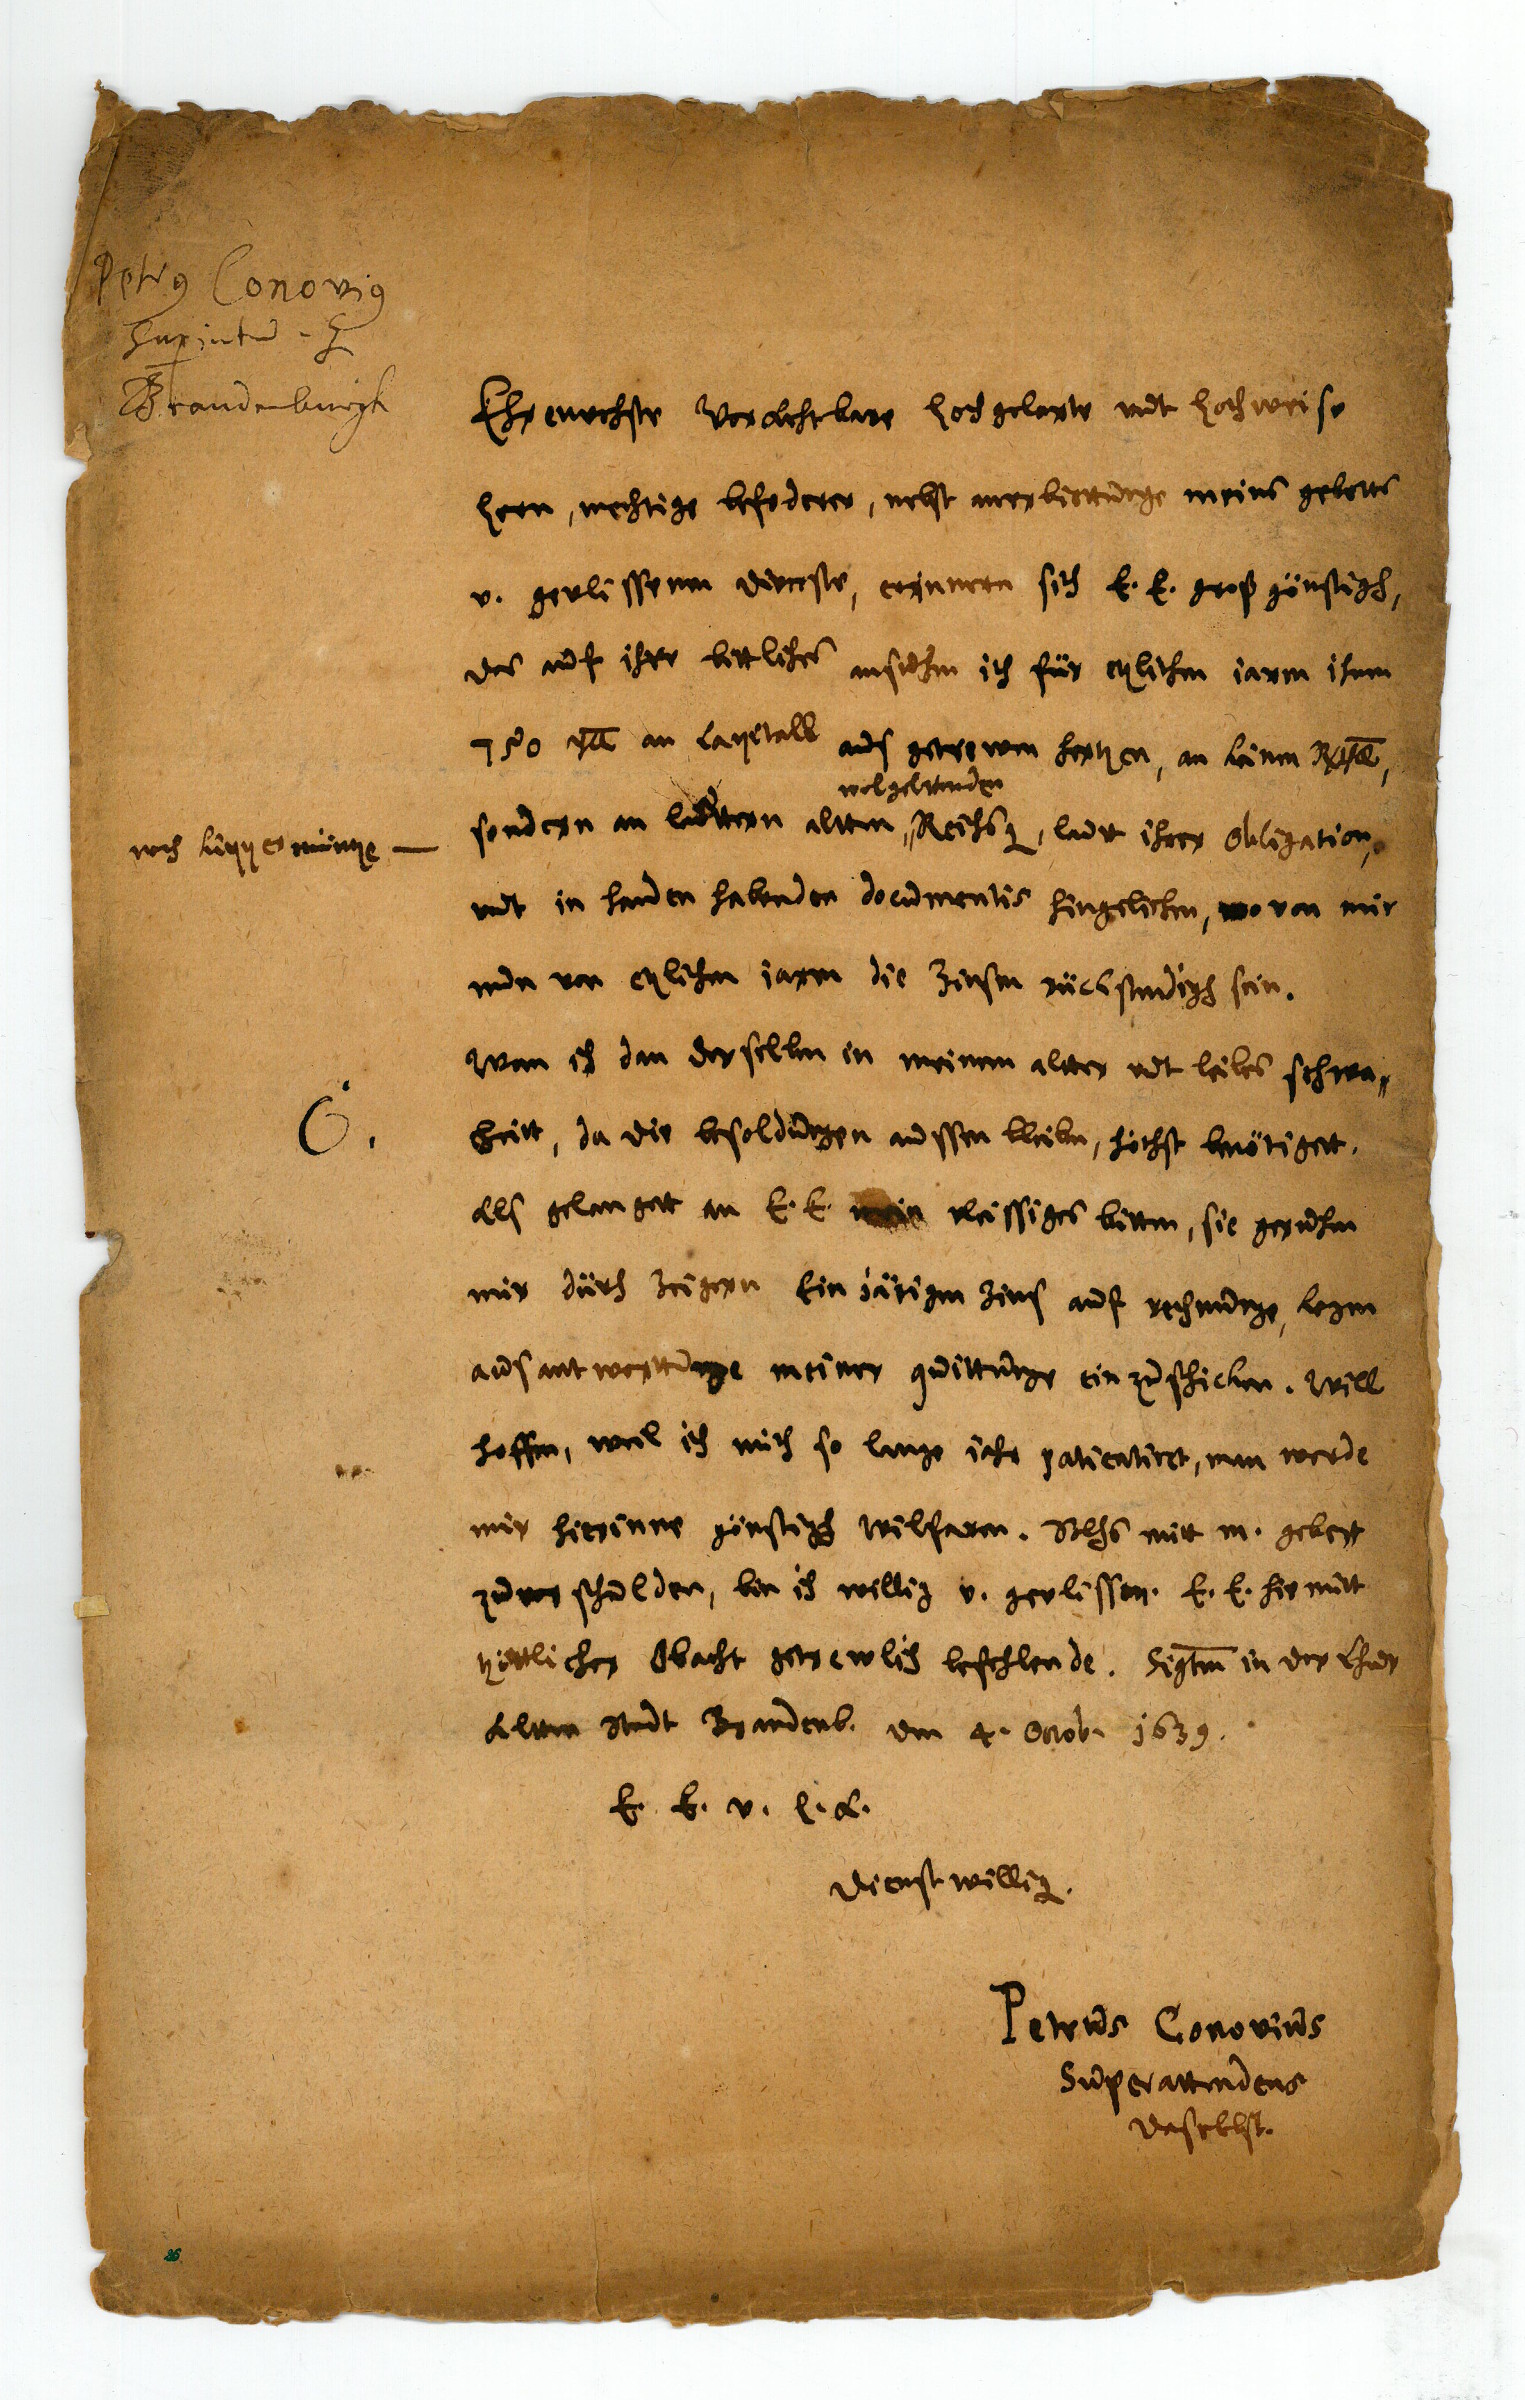 Petrus Conovius
Superintend. 
Brandenburgk
Ehrenvehste Vorachtbare hochgelarte undt hochweise
hern, mechtige befoderer, nebst anerbiettunge meins gebetts
v. gevlissenen dienste, erinnern sich E. E. groß günstigh,
das auf ihre bittliches ansuchen ich für etzlichen iaren ihnen
750 an Capitall aus getrewen hertzen, an keinem
wolgeltenden
sondern an lauttern altten, Reichs, laut ihrer Obligation,
noch kippermüntze —
undt in handen habenden documentis hingeliehen, wovon mir
nun von etzlichen iaren die Zinsen rückstendigh sein.
Wan ich dan derselben in meinem altter undt leibes schwa„
C.
cheitt, da die besoldungen aussen bleiben, höchst benötigett.
Als gelangett an E. E. mein vleissiges bitten, sie geruhen
mir durch Zeigern Ein järigen Zins auf rechnunge, kegen
ausantworttunge meiner quittunge einzuschicken. Will
hoffen, weil ich mich so lange iahr patientiret, man werde
mir hierinne günstigh wilfaren. Solchs mitt m. gebett
zuverschulden, bin ich willig v. gevlissen. E. E. hiermitt
göttlicher Obacht getrewlich befehlende. Sigtm in der Chur
Altten Stadt Brandenb. den 4. Octob. 1639.
E. E. v. 
Dienstwillig.
Petrus Conovius
Superattendens
daselbst.
26